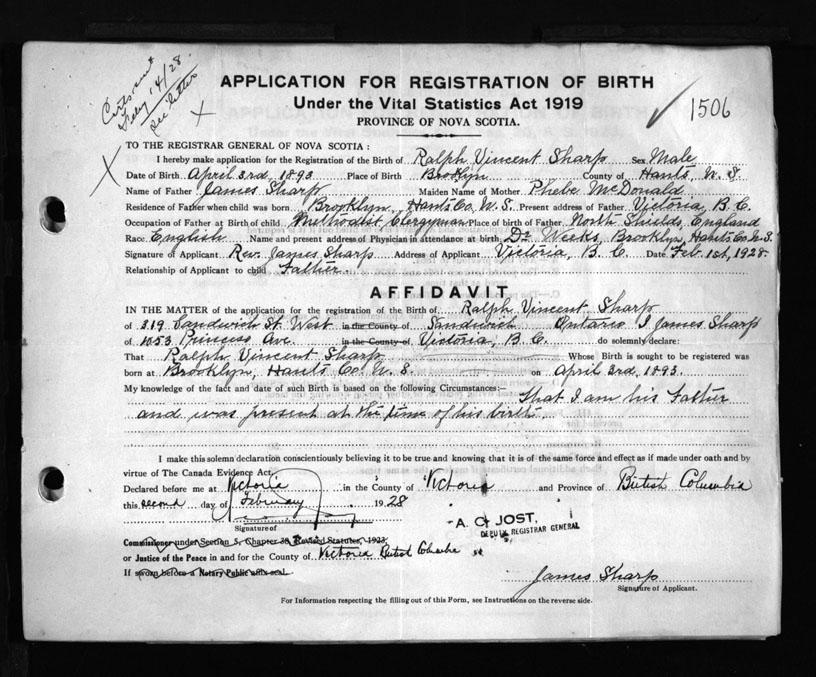 Feby 14/28.
See letter
X
X
✓ 1506
APPLICATION FOR REGISTRATION OF BIRTH
Under the Vital Statistics Act 1919
PROVINCE OF NOVA SCOTIA.
TO THE REGISTRAR GENERAL OF NOVA SCOTIA :
I hereby make application for the Registration of the Birth of Ralph Vincent Sharp Sex Male
Date of Birth April 3rd, 1893 Place of Birth Brooklyn County of Hants, N. S.
Name of Father James Sharp Maiden Name of Mother Phebe McDonald
Residence of Father when child was born Brooklyn, Hants Co, N. S. Present address of Father Victoria, B. C.
Occupation of Father at Birth of child Methodist Clergyman Place of Birth of Father North Shields, England
Race English Name and present address of Physician in attendance at birth Dr Weeks, Brooklyn, Hants Co N. S.
Signature of Applicant Rev. James Sharp Address of Applicant Victoria, B. C. Date Feb. 1st, 1928.
Relationship of Applicant to child Father.
AFFIDAVIT
IN THE MATTER of the application for the registration of the Birth of Ralph Vincent Sharp
of 319 Sandwich St. West in the County of Sandwich Ontario I James Sharp
of 1053 Princess Ave. in the County of Victoria, B. C. do solemnly declare:
That Ralph Vincent Sharp Whose Birth is sought to be registered was
born at Brooklyn, Hants Co. N. S. on April 3rd, 1893.
My knowledge of the fact and date of such Birth is based on the following Circumstances:— That I am his Father
and was present at the time of his birth.
I make this solemn declaration conscientiously believing it to be true and knowing that it is of the same force and effect as if made under oath and by
virtue of The Canada Evidence Act.
Declared before me at Victoria in the County of Victoria and Province of British Columbia
this second day of February 1928
Signature of
A. C. JOST,
DEPUTY REGISTRAR GENERAL
Commissioner under Section 5, Chapter 38 Revised Statutes, 1923
or Justice of the Peace in and for the County of Victoria British Columbia
If sworn before a Notary Public affix seal.
James Sharp
Signature of Applicant.
For Information respecting the filling out of this Form, see Instructions on the reverse side.